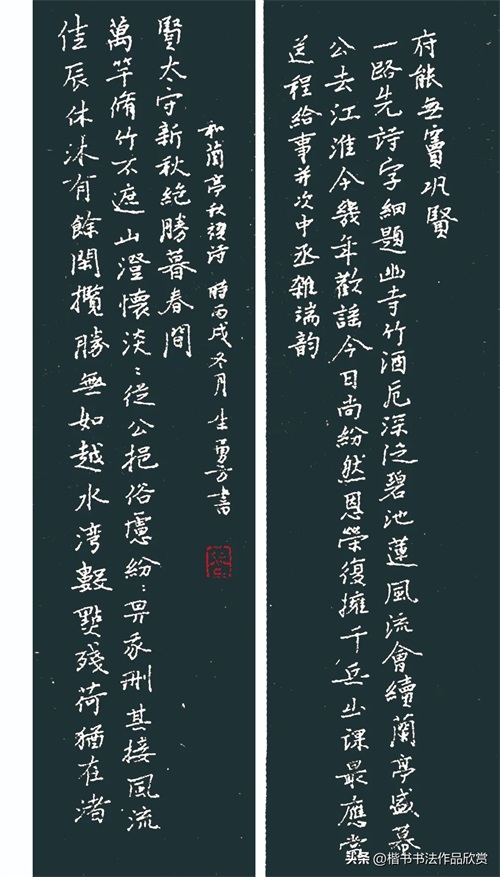 佳辰休沐有餘閑攬勝無如越水湾數點殘荷猶在渚
萬竿脩竹不遮山澄懷淡〻從公挹俗慮紛〻畀我刪甚接風流
賢太守新秋絶勝暮春間
和蘭亭秋禊詩 時丙戌冬月生勇芳書
送程給事并次中丞雜端韵
公去江淮今幾年歡謠今日尚紛然恩榮復擁千兵出課最應當
一路先詩字細題幽寺竹酒卮深泛碧池蓮風流會續蘭亭盛幕
府能無實巩賢
头条 @楷书书法作品欣赏